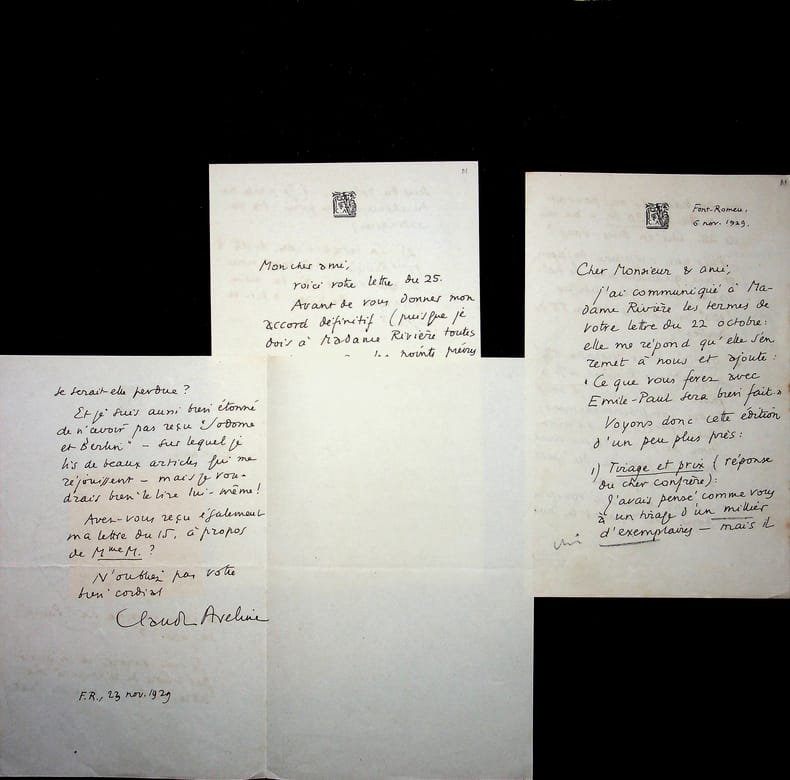 Mon cher ami,
voici votre lettre du 25.
Avant de vous donner mon
accord définitif (puisque je
dois à Madame Rivière toutes
les points prévus
Font-Romeu,
6 nov. 1929.
Cher Monsieur & ami,
j'ai communiqué à Ma-
dame Rivière les termes de
votre lettre du 22 octobre:
elle me répond qu'elle s'en
remet à nous et ajoute:
"Ce que vous ferez avec
Emile-Paul sera bien fait."
Voyons donc cette édition
d'un peu plus près:
1) Tirage et prix (réponse
du cher confrère):
J'avais pensé comme vous
à un tirage d'un millier
d'exemplaires — mais il
se serait-elle perdue?
Et je suis aussi bien étonné
de n'avoir pas reçu "Sodome
et Berlin" — sur lequel je
lis de beaux articles qui me
réjouissent — mais je vou-
drais bien le lire lui-même!
Avez-vous reçu également
ma lettre du 15, à propos
de Mme M.?
N'oubliez pas votre
bien cordial
Claude Aveline
F.R., 23 nov. 1929